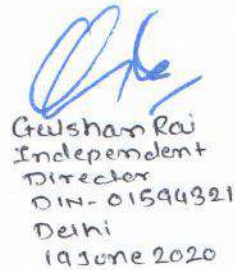 Gulshan Rai
Independent
Director
DIN- 01594321
Delhi
19 June 2020